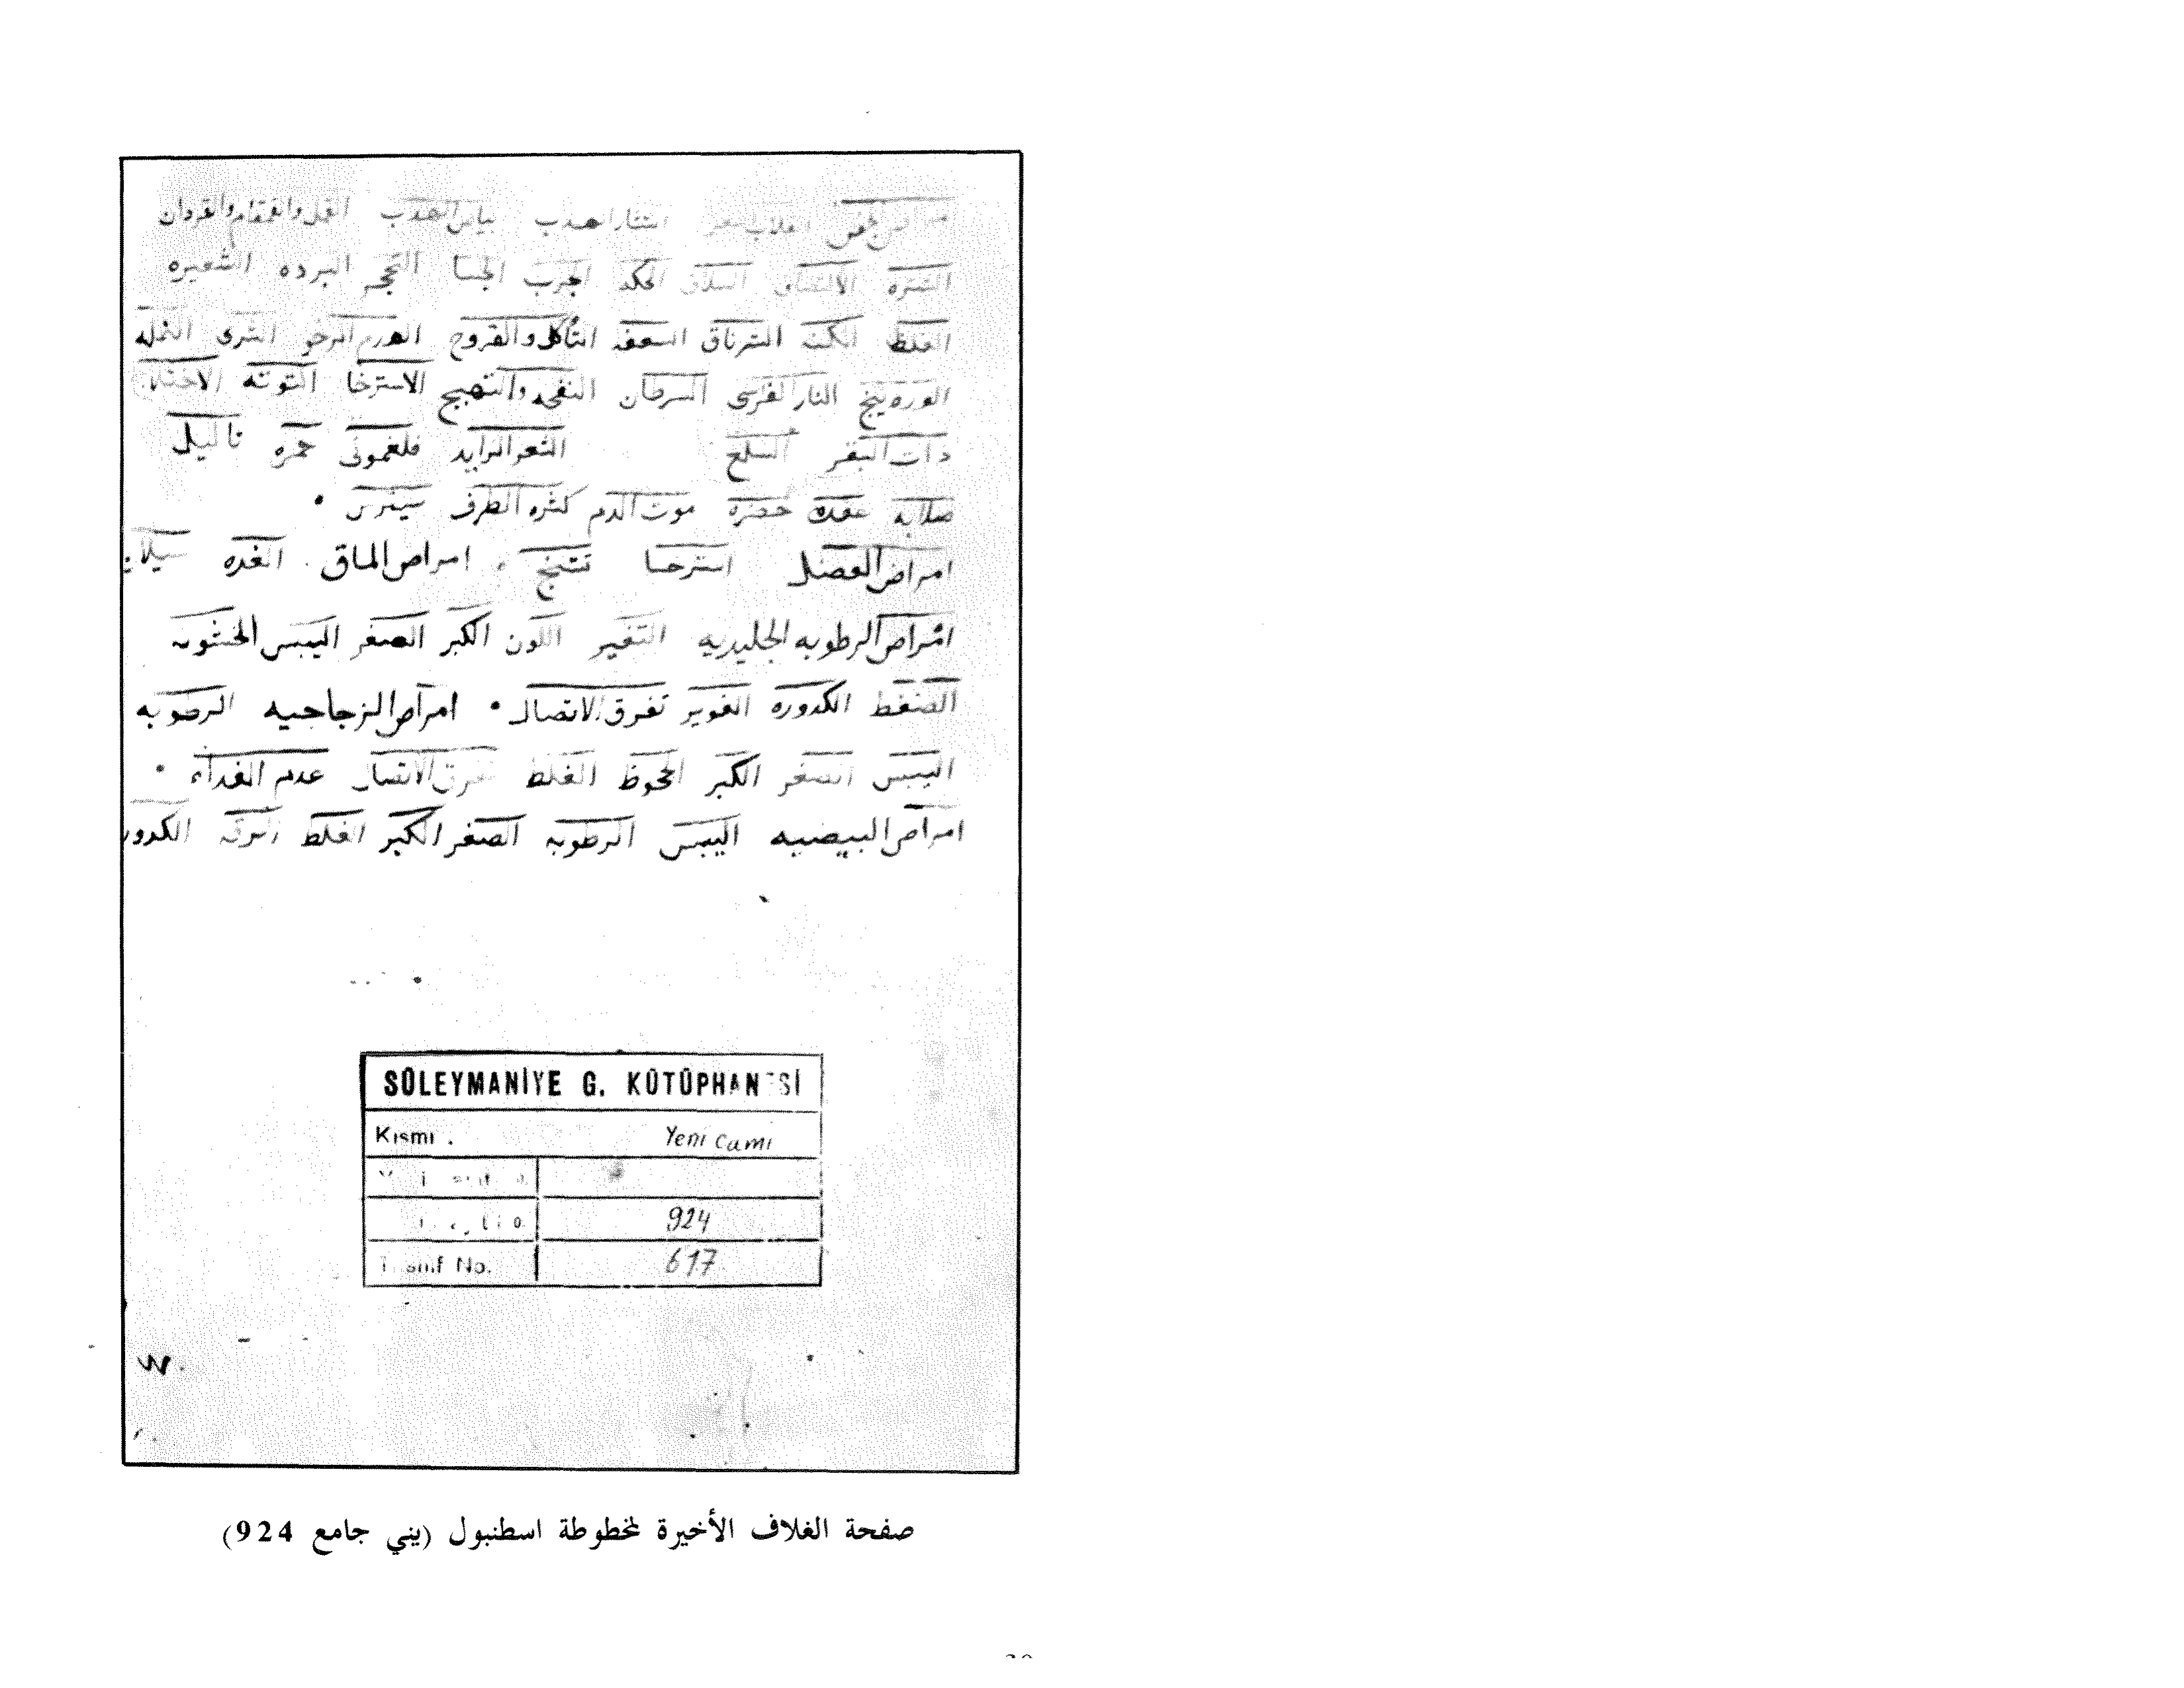 امراض الجفن انقلاب الشعر انتثار الهدب بياض الهدب القمل والقمقام والقردان
الشتره الالتصاق السلاق الحكه الجرب الجسا التحجر البرده الشعيره
الغلظ الكمنه الشرناق السعفه التأكل والقروح الورم الرخو الشرى النمله
الوردينج النار الفارسى السرطان النفحه والتهيج الاسترخا التوته
دات البقر السلع الشعر الزايد فلغمونى حمره تاليل
صلابه عقده خضره موت الدم كثره الطرف
امراض العضل استرخا تشنج . امراض الماق الغده سيلان
امراض الرطوبه الجليديه التغير اللون الكبر الصغر اليبس الخشونه
الضغط الكدوره الغوير تفرق الاتصال • امراض الزجاجيه الرطوبه
اليبس الصغر الكبر الجحوظ الغلظ تفرق الاتصال عدم الغداء •
امراض البيضيه اليبس الرطوبه الصغر الكبر الغلظ الرقه الكدور
SÜLEYMANİYE G. KÜTÜPHANESİ
Kısmı . Yeni Cami
924
Tasnif No. 617
صفحة الغلاف الأخيرة لمخطوطة اسطنبول (يني جامع 924)